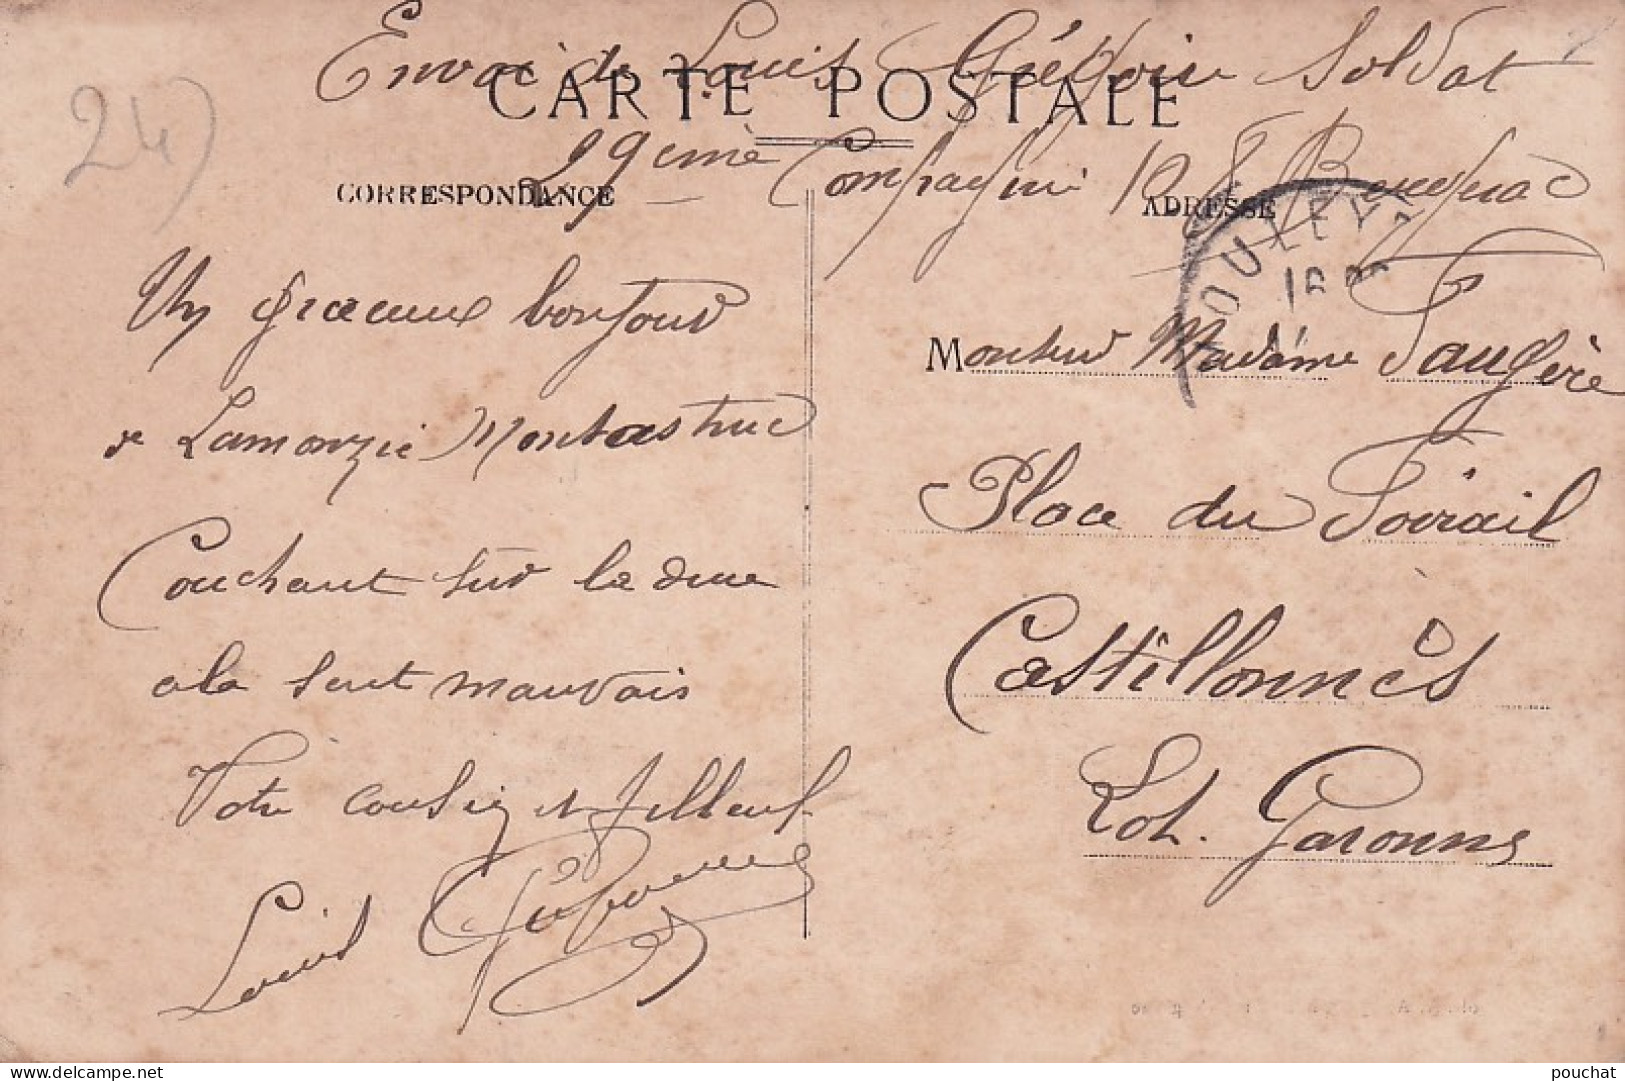 24)
Envoi de Louis Grégoire Soldat
CARTE POSTALE
29eme Compagnie 108 Bergerac
CORRESPONDANCE
ADRESSE
Un gracieux bonjour
de Lamonzie Montastruc
Couchant sur la dure
ala sent mauvais
Votre cousin et filleul
Louis Grégoire
Monsieur Madame Faugère
Place du Foirail
Castillonnès
Lot. Garonne
OULEY
delcampe.net
pouchat